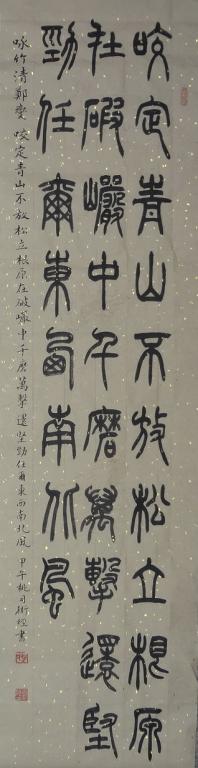 咬定青山不放松立根原
在破巖中千磨萬擊還堅
勁任爾東西南北風
咏竹清鄭燮 咬定青山不放松立根原在破巖中千磨萬擊還坚勁任爾東西南北風 甲午桃月書